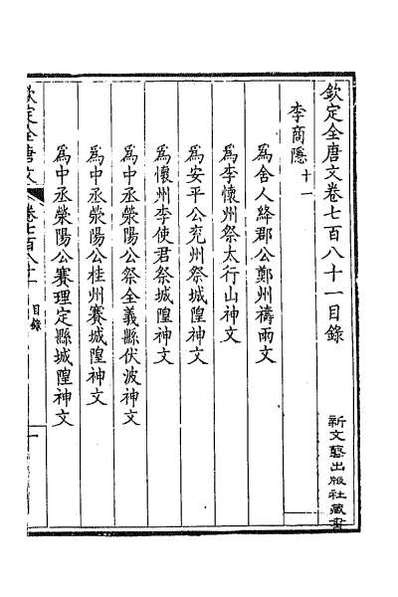 欽定全唐文卷七百八十一目錄
新文藝出版社藏書
李商隱十一
爲舍人絳郡公鄭州禱雨文
爲李懷州祭太行山神文
爲安平公兖州祭城隍神文
爲懷州李使君祭城隍神文
爲中丞滎陽公祭全義縣伏波神文
爲中丞滎陽公桂州賽城隍神文
爲中丞滎陽公賽理定縣城隍神文
欽定全唐文
卷七百八十一
目錄
一